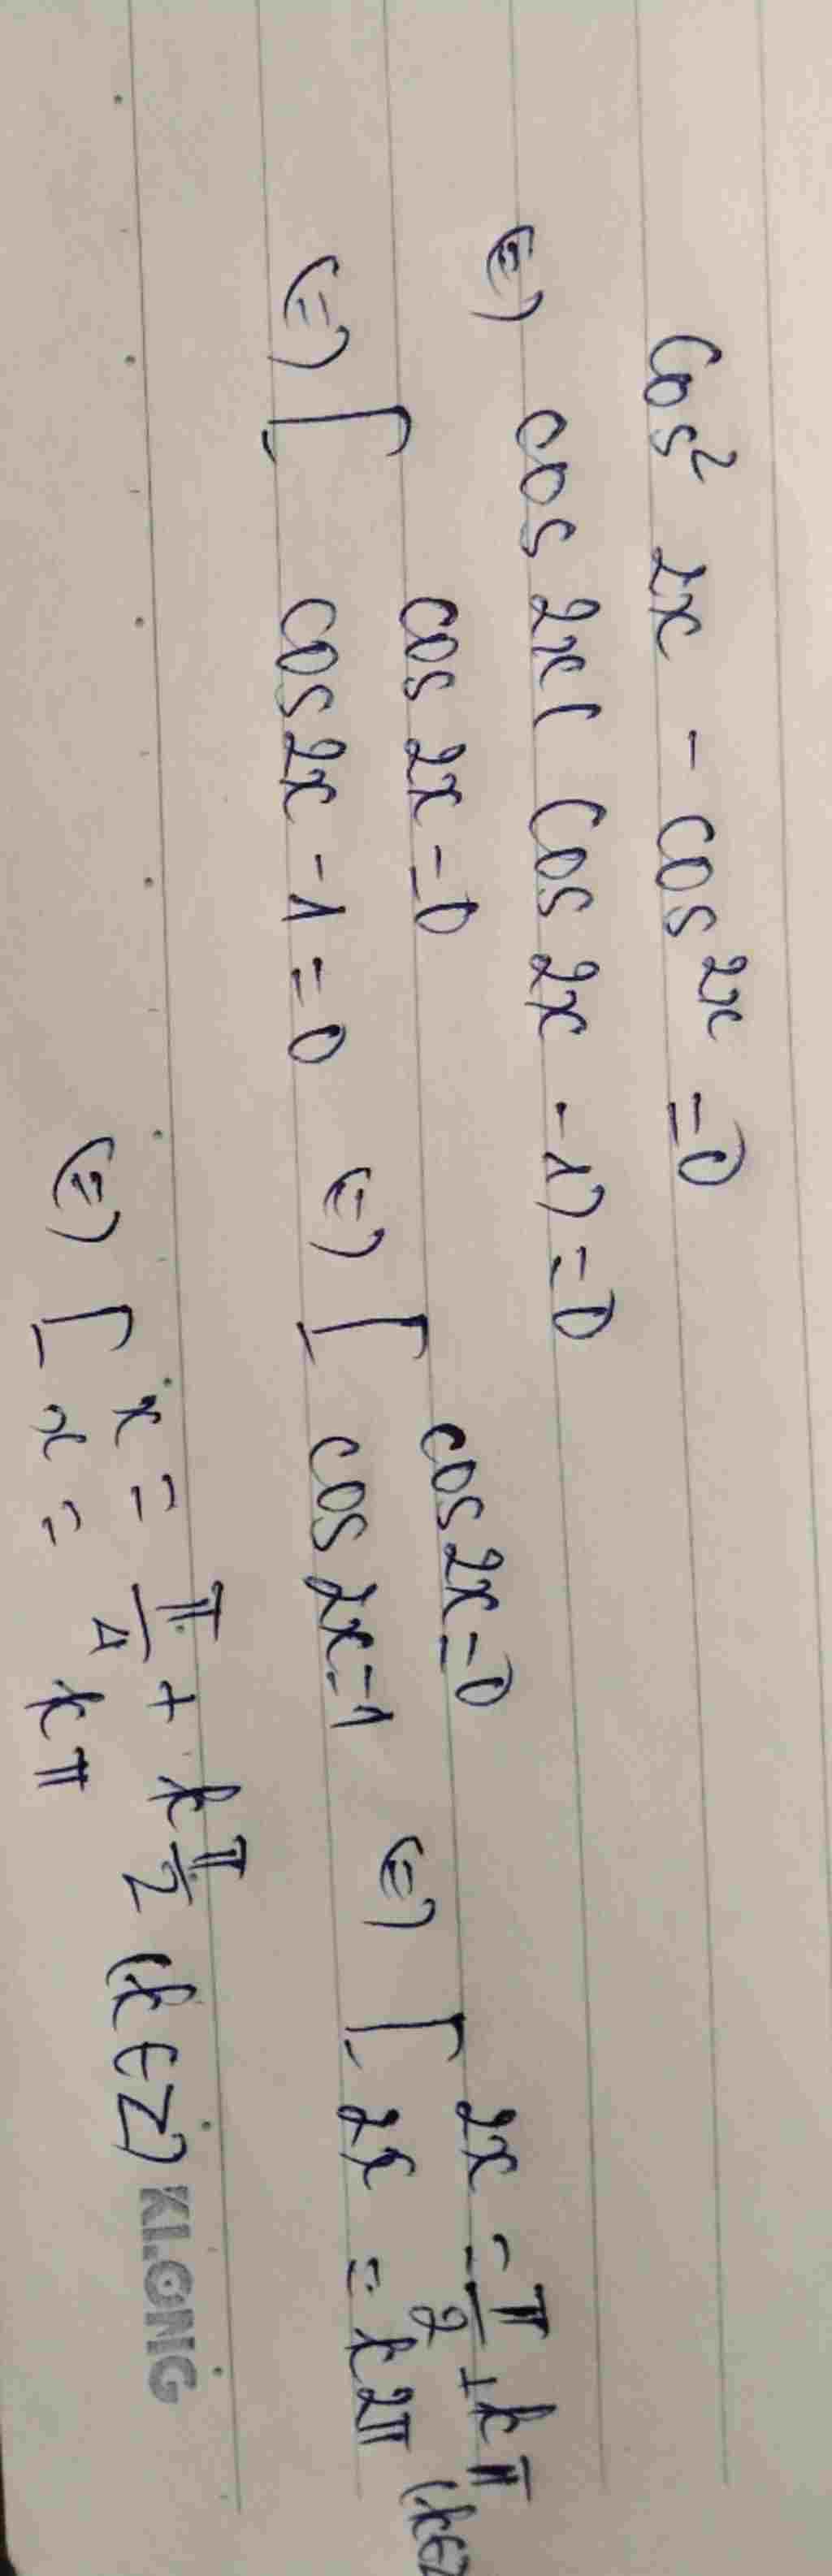 cos² 2x - cos 2x = 0
(=) cos 2x ( cos 2x - 1) = 0
(=) [ cos 2x = 0
cos 2x - 1 = 0 (=) [ cos 2x = 0
cos 2x = 1 (=) [ 2x = π/2 + kπ
2x = k2π (k∈Z
(=) [ x = π/4 + k π/2 (k∈Z)
x = kπ
KLONG